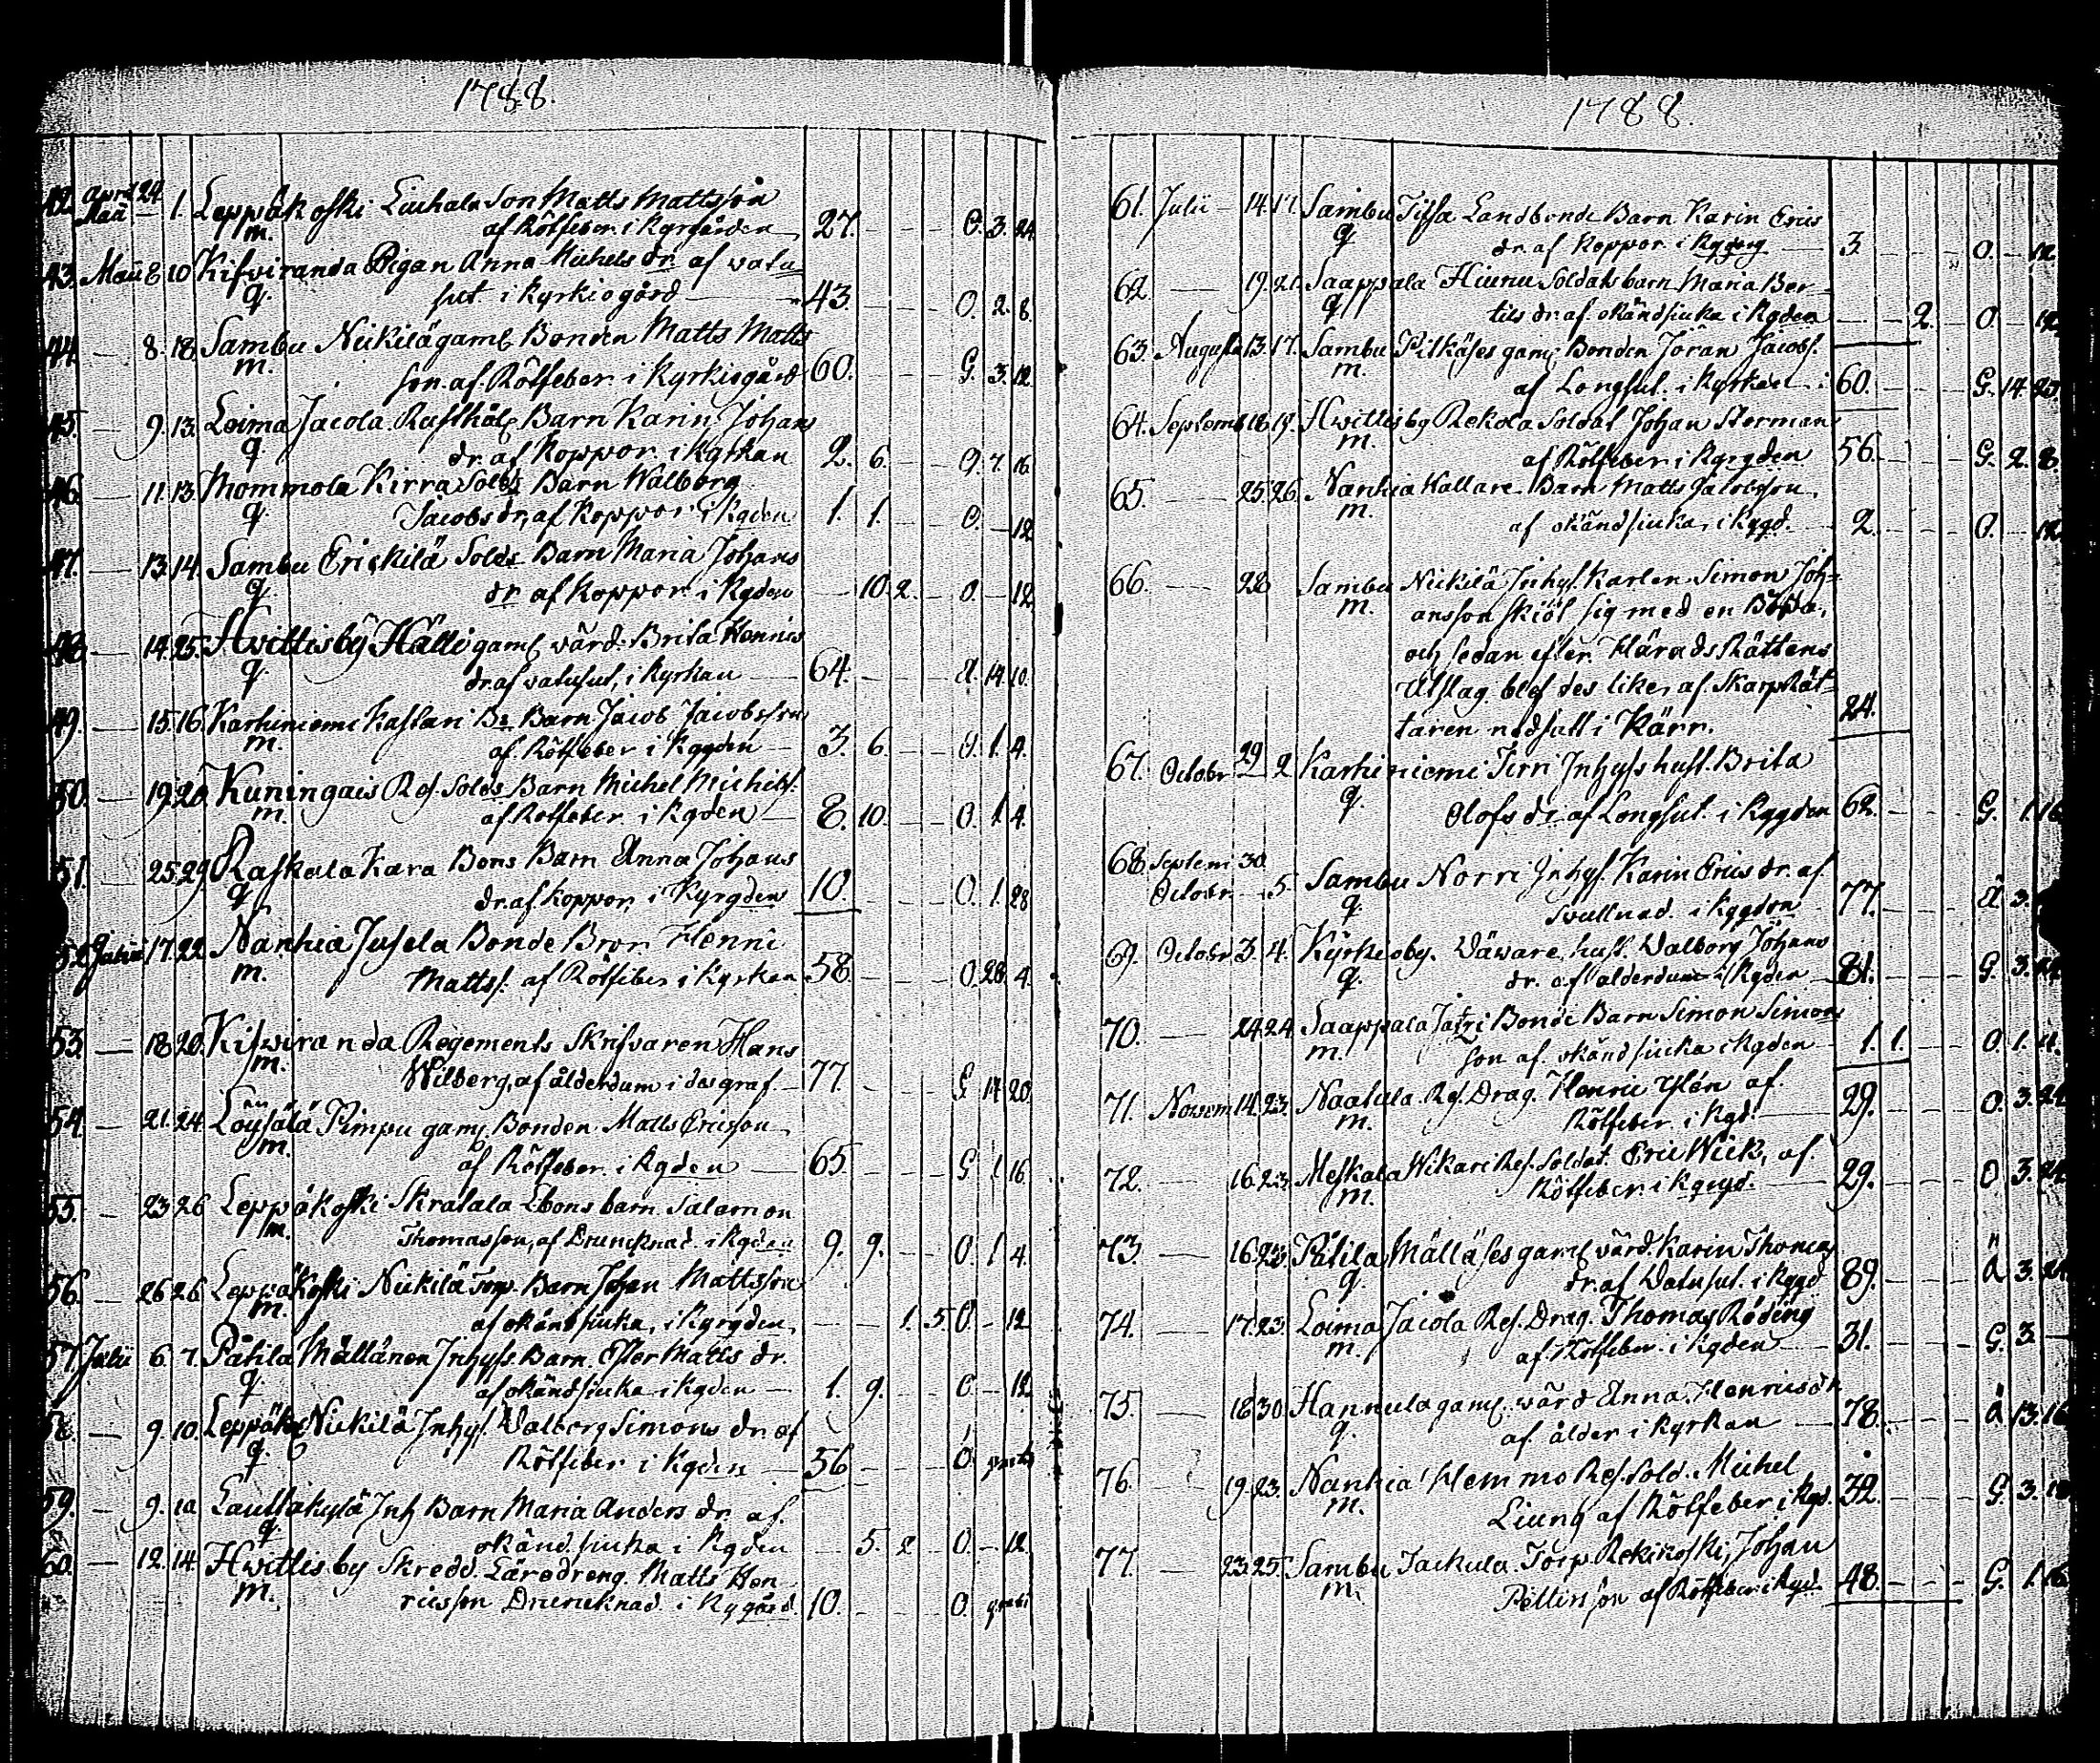 1788.
42. April 24 Maii — 1. Leppäkoski Liuhala Son Matts Mattsson
m. af Rötfeber i Kyrgården 27. O. 3. 24
43. Maii 8 10 Kifwiranda Pigan Anna Michels dr af vatu
q. sut. i Kyrkiogård 43. O. 2. 8.
44. — 8. 18. Sambu Nickilä gaml Bonden Matts Matts
m. son. af Rötfeber i Kyrkiogård 60. G. 3. 12.
45. — 9. 13. Loima Jacola Barn Karin Johans
q dr. af Koppor i Kyrkan 2. 6. 7. 16.
46. — 11. 13. Mommola Kirra Solds Barn Walborg
q. Jacobs dr, af Koppor i Kgden 1. 1. O. — 12
47. — 13. 14. Sambu Erickilä Solds Barn Maria Johans
q. dr af Koppor i Kgden — 10. 2. O. — 12
48. — 14. 25. Hwittisby Hälli gaml wärd. Brita Henrics
q. dr. af vatusut, i Kyrkan 64. 14. 10.
49. — 15. 16. Karhiniemi Kastari Bs Barn Jacob Jacobsson
m. af Rötfeber i Kygden 3. 6. 1. 4.
50. — 19. 20. Kuningais Rs. Solds Barn Michel Michels.
m. af Rotfeber i Kgden 8. 10. O. 1. 4.
51. — 25. 29. Raskala Kara Bons Barn Anna Johans
q dr. af koppor i Kyrgden 10. O. 1. 28
52. 17. 22. Nanhia Jusela Bonde Bror Henric
m. Matts. af Rötfeber i Kyrkan 58. O. 28. 4.
53. — 18. 20. Kifwiranda Regements Skrifvaren Hans
m. Wilberg, af ålderdum i des graf. 77. G. 17. 20.
54. — 21. 24. Löysälä Pimpu gaml Bonden Matts Ericsson
m. af Rötfeber i Kgden 65. G. 1. 16.
55. — 23. 26 Leppäkoski Skratala Ebons barn Salamon
m. Thomasson, af Druncknad. i Kgden 9. 9. O. 1. 4.
56. — 26. 26. Leppäkoski Nickilä Torp. Barn Johan Mattsson
m. af okänd siuka, i Kyrgden, — 1. 5. O — 12
57. Julii 6. 7. Pätila Mällänen Inhyss. Barn. Ester Matts dr.
q. af okänd siuka i Kgden 1. 9. O — 12
58. — 9. 10. Leppäk Nickilä Inhys. Walborg Simons dr. af
q. Rötfeber i Kgden 56. O. gratis
59. — 9. 10. Lauttakylä Inh Barn Maria Anders dr. af.
q. okänd siuka i Kgden — 5. 2 O. — 12.
60. — 12. 14. Hwittisby Skredd. Läredreng. Matts Hen
m. ricsson Druncknad. i Kygård. 10. O. gratis
1788.
61. Julii — 14. 17. Sambu Tilsa Landbonde Barn Karin Erics
q dr. af Koppor i Kygdng 3. O. — 12
62. — 19. 21. Saappala Hiunu Soldats barn Maria Ber
q tils dr. af okänd siuka i Kgden — 2. O — 12
63. Augusti 13. 17. Sambu Pitkäses gaml Bonden Jöran Jacobs.
m. af Longsut. i Kyrkan 60. G. 14. 20
64. Septemb 18. 19. Hwittisby Rekola Soldat Johan Storman
m. af Rötfeber i Kyrgden 56. G. 2. 8.
65. — 25. 26. Nanhia Kallare Barn Matts Jacobsson.
m. af okänd siuka, i Kygd. 2. O. — 12
66. — 28 Sambu Nickilä Inhys. Karlen Simon Joh=
m. ansson skiöt sig med en Bössa,
och sedan efter HäradsRättens
Utslag blef des like, af SkarpRät=
taren nedsatt i Kärr. 24.
67. Octobr 29 2 Karhiniemi Tirri Inhyss hust. Brita
q. Olofs dr af Longsut. i Kygden 62. G. 1. 16
68. Septem 30. Octobr — 5 Sambu Norri Inhys. Karin Erics dr. af
q. Svullnad. i Kygden 77. Ä 3.
69. Octobr 3. 4. Kyrkioby. Wäware hust. Walborg Johans
q. dr. af alderdum i Kgden 81. G. 3. 24
70. — 24. 24 Saappala Jatri Bonde Barn Simon Simons
m. son af. okänd siuka i Kgden 1. 1. O. 1. 4.
71. Novem 14. 23. Naatula Rs. Drag. Henric Ylén af.
m. Rötfeber i Kgd. 29. O. 3. 24
72. — 16. 23. Meskala Wikari Res. Soldat. Eric Wiik, af.
m. Rötfeber. i Kgryd. 29. O 3. 24
73. — 16. 23. Pätila Mälläses gaml wärd. Karin Thomas
q. dr. af Watusut. i Kygd 89. Ä 3. 24
74. — 17. 23. Loima Jacola Res. Drag. Thomas Röding
m. af Rötfeber. i Kgden 31. G. 3. —
75. — 18. 30. Hannula gaml. wärd Anna Henricsdr
q. af. ålder i Kyrkan 78. Ä 13. 16
76. — 19. 23. Nanhia Hemmo Res. Sold. Michel
m. Liung af Rötfeber, i Kgd. 32. G. 3.
77. — 23. 25. Sambu Jackula Torp Rekikoski, Johan
m. Pettersson af Rötfeber i Kyd. 48. G. 1. 16